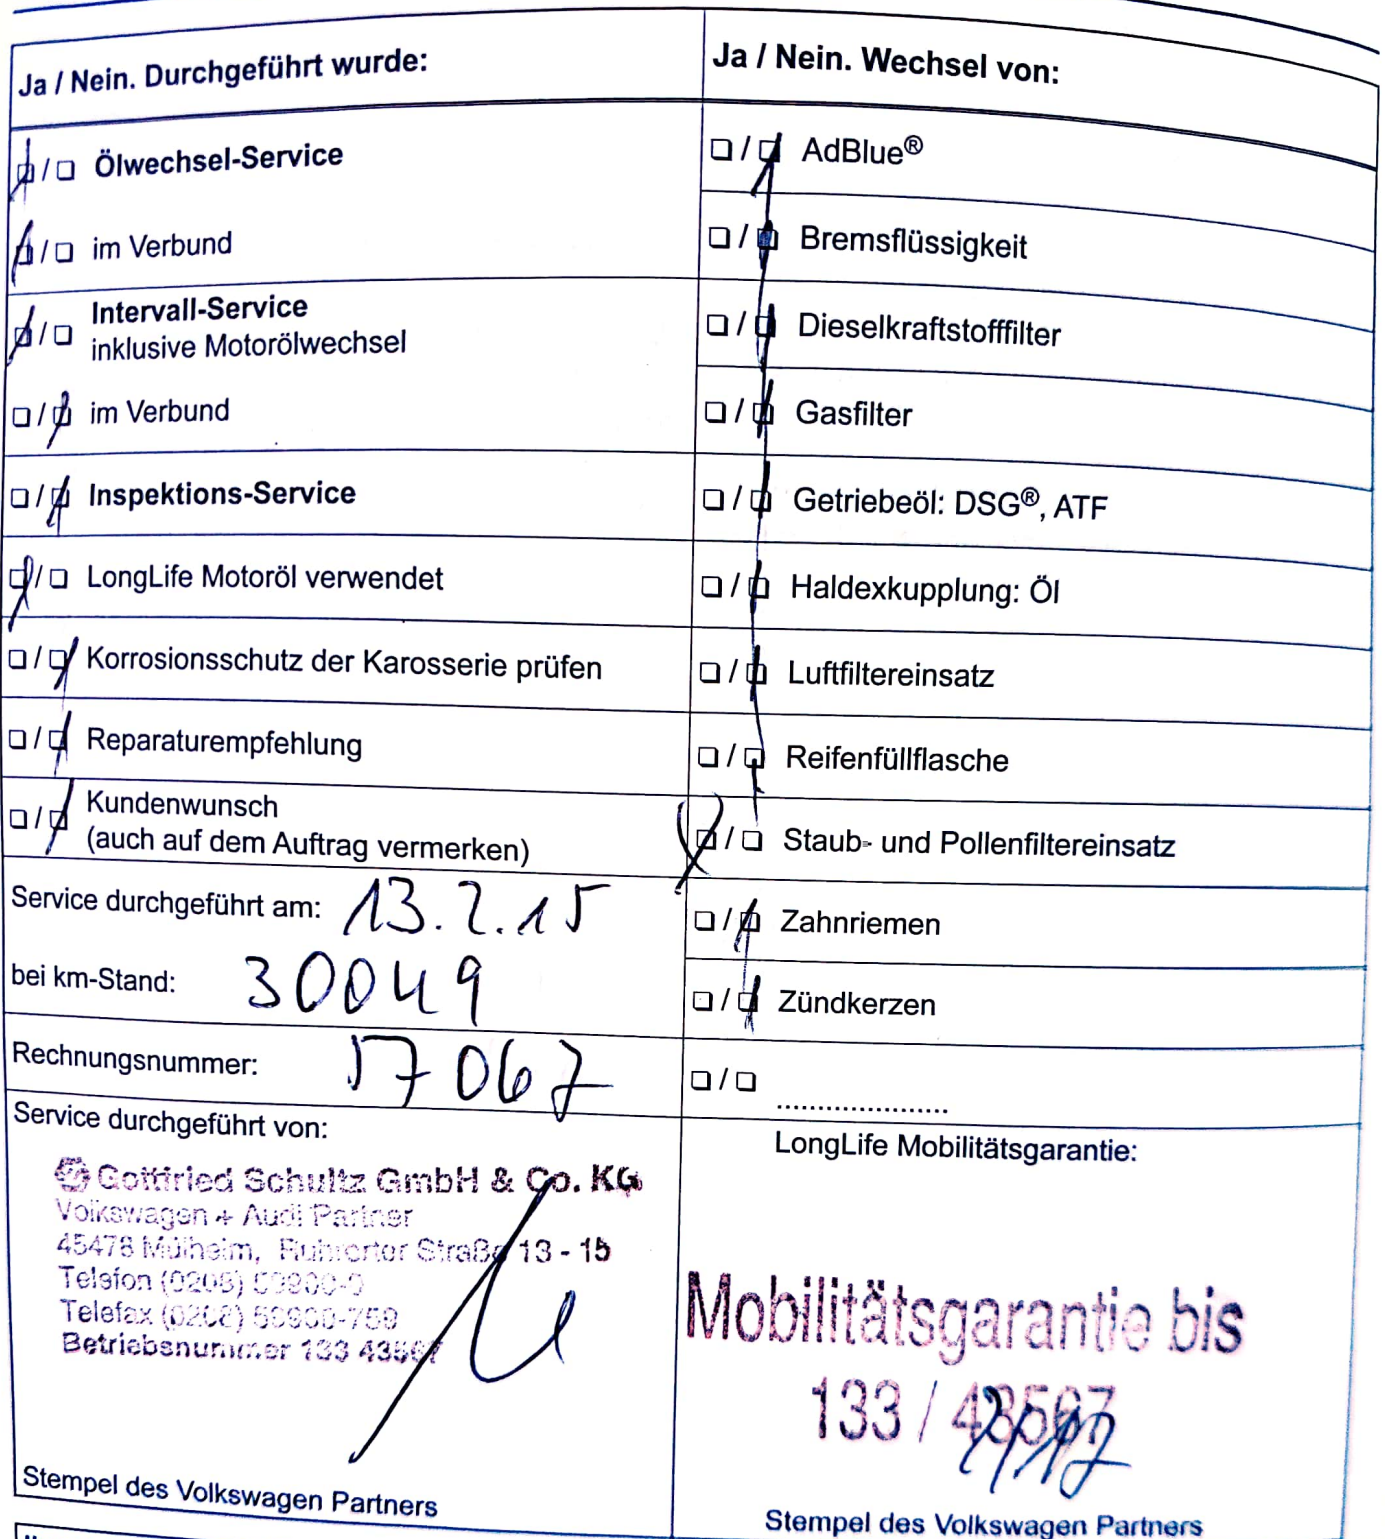 Ja / Nein. Durchgeführt wurde:
☐/☐ Ölwechsel-Service
☐/☐ im Verbund
☐/☐ Intervall-Service
inklusive Motorölwechsel
☐/☐ im Verbund
☐/☐ Inspektions-Service
☐/☐ LongLife Motoröl verwendet
☐/☐ Korrosionsschutz der Karosserie prüfen
☐/☐ Reparaturempfehlung
☐/☐ Kundenwunsch
(auch auf dem Auftrag vermerken)
Service durchgeführt am: 13.2.15
bei km-Stand: 30049
Rechnungsnummer: 17067
Service durchgeführt von:
Gottfried Schultz GmbH & Co. KG
Volkswagen + Audi Partner
45478 Mülheim, Ruhrorter Straße 13 - 15
Telefon (0208)
Telefax (0208)
Betriebsnummer 133 43567
Stempel des Volkswagen Partners
Ja / Nein. Wechsel von:
☐/☐ AdBlue®
☐/☐ Bremsflüssigkeit
☐/☐ Dieselkraftstofffilter
☐/☐ Gasfilter
☐/☐ Getriebeöl: DSG®, ATF
☐/☐ Haldexkupplung: Öl
☐/☐ Luftfiltereinsatz
☐/☐ Reifenfüllflasche
☐/☐ Staub- und Pollenfiltereinsatz
☐/☐ Zahnriemen
☐/☐ Zündkerzen
☐/☐ .....................
LongLife Mobilitätsgarantie:
Mobilitätsgarantie bis
133 / 43567
2/17
Stempel des Volkswagen Partners